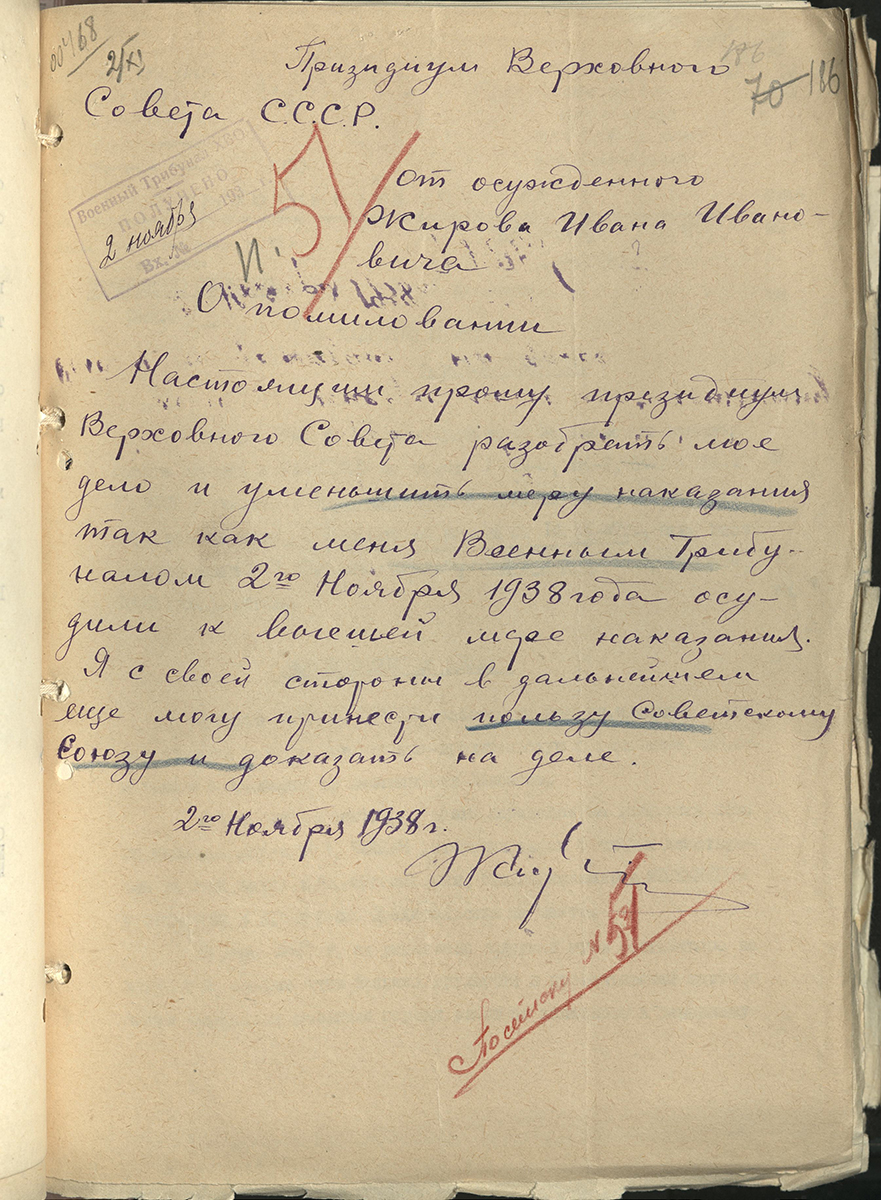 00468
2/XI
186
Призидиум Верховного
70 186
Совета С.С.С.Р.
Военный Трибунал ХВО
ПОЛУЧЕНО
2 ноября 193
Вх. №
51
от осужденного
Жирова Ивана Ивано-
вича
О помиловании
Настоящим прошу президиум
Верховного Совета разобрать мое
дело и уменьшить меру наказания
так как меня Военным Трибу-
налом 2го Ноября 1938 года осу-
дили к высшей мере наказания.
Я с своей стороны в дальнейшем
еще могу принести пользу Советскому
Союзу и доказать на деле.
2го Ноября 1938 г.
N 51